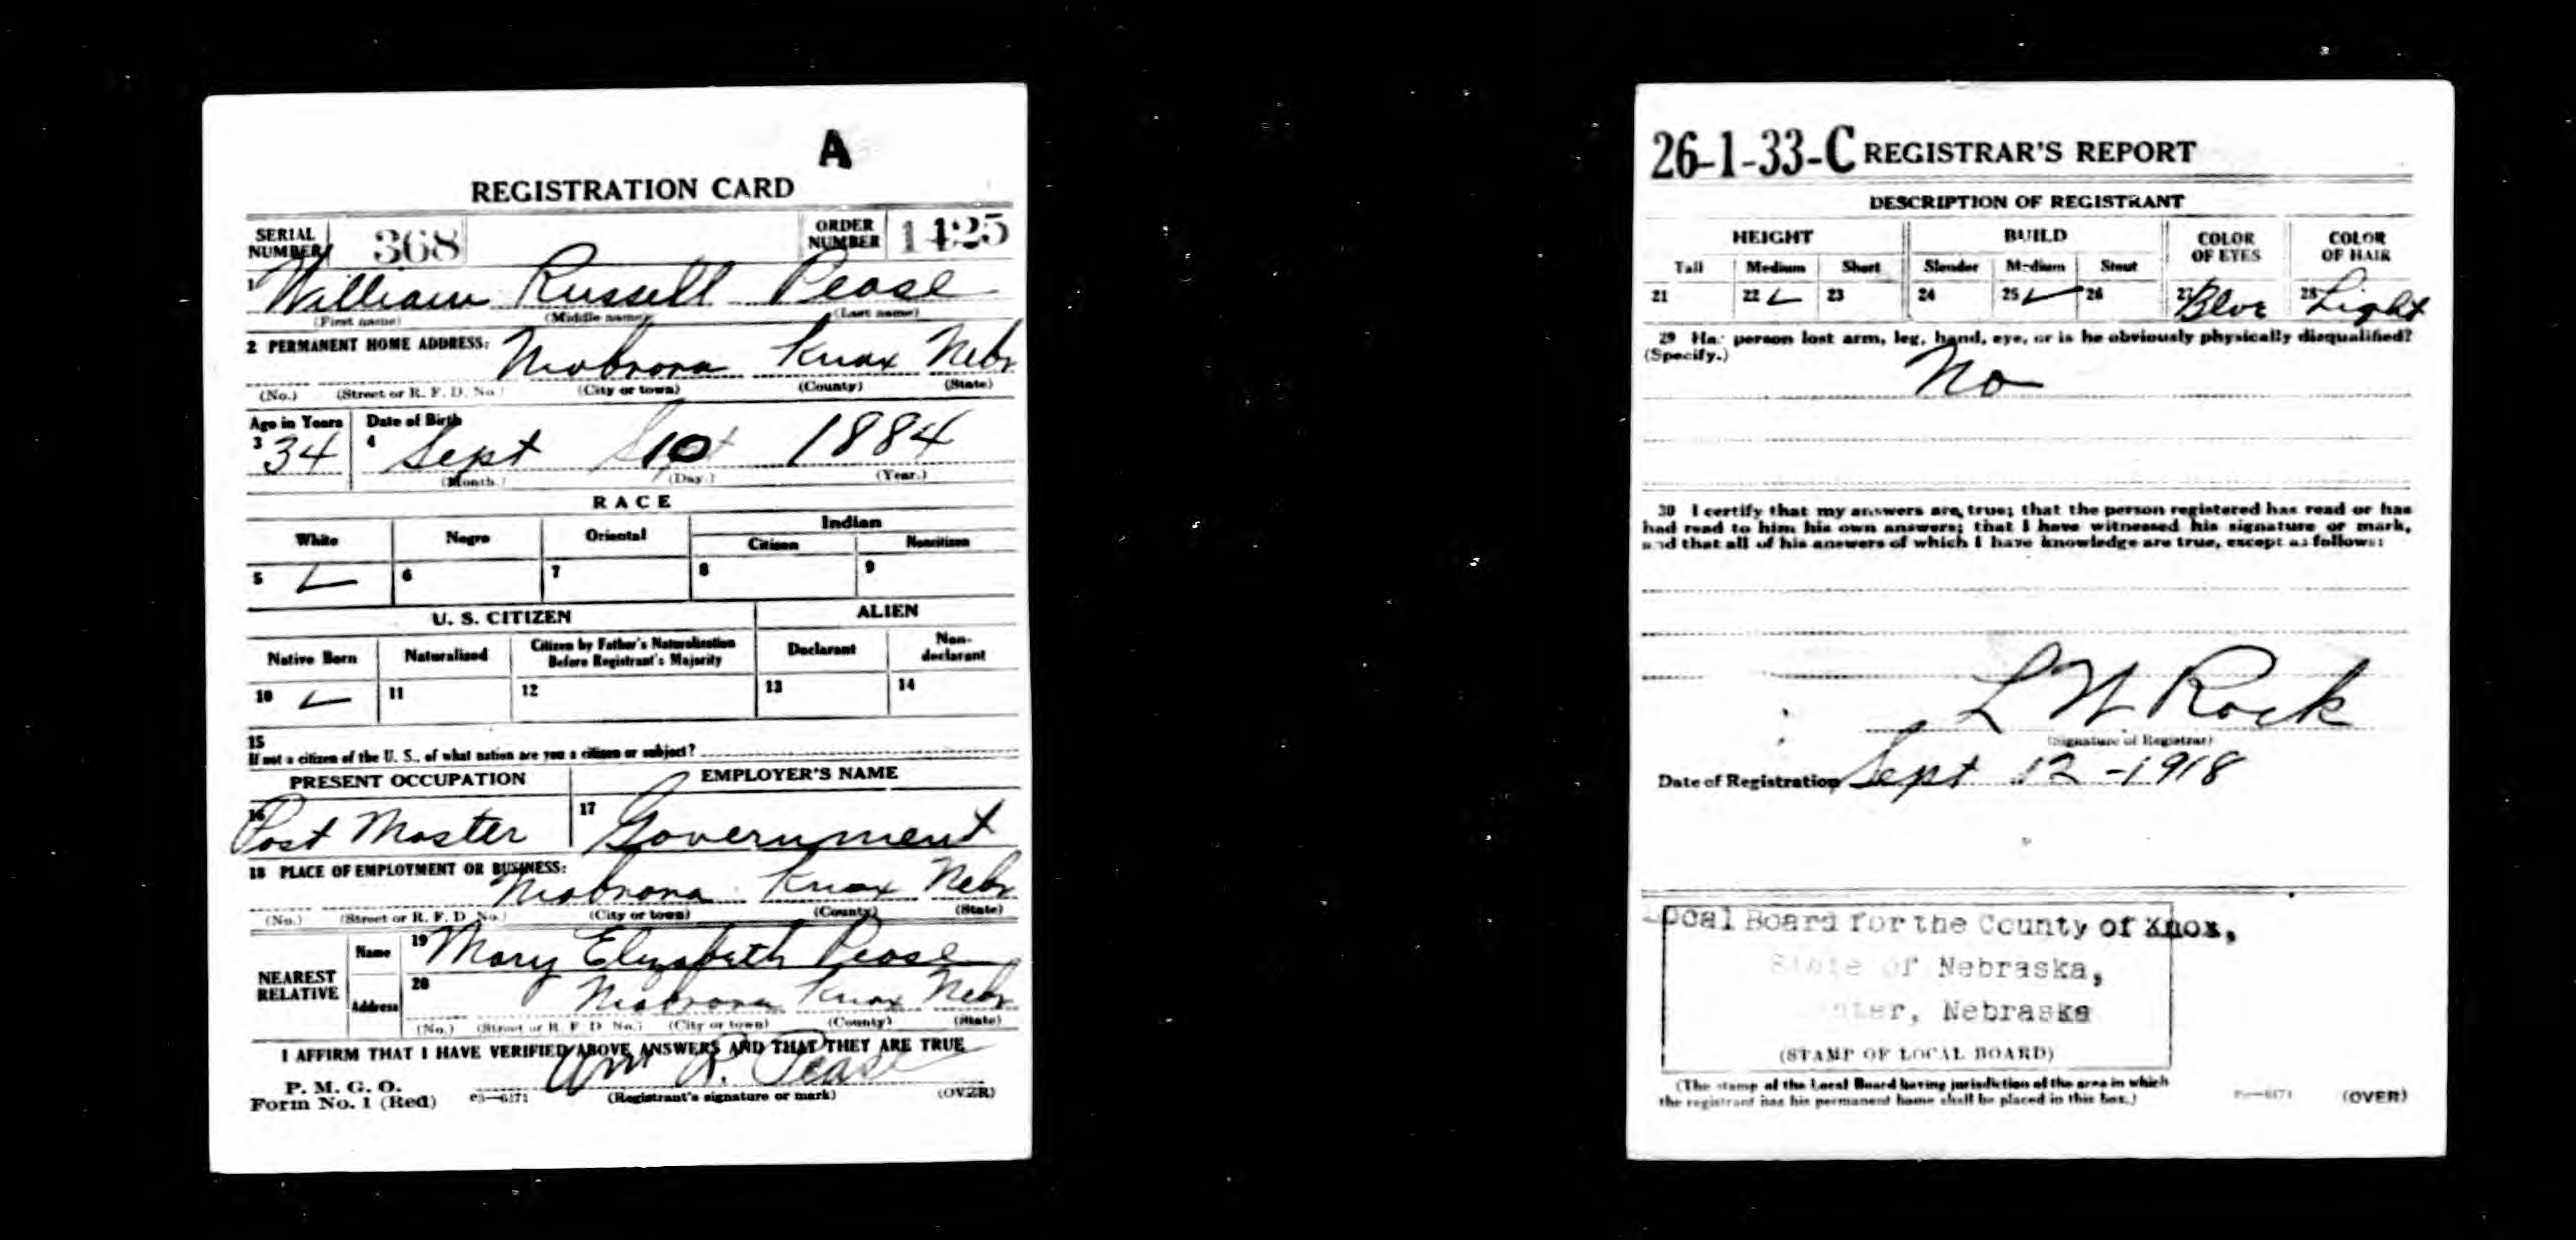 A
REGISTRATION CARD
SERIAL NUMBER 368 ORDER NUMBER 1425
1 William Russell Pease
(First name) (Middle name) (Last name)
2 PERMANENT HOME ADDRESS: Niobrara Knox Nebr
(No.) (Street or R. F. D. No.) (City or town) (County) (State)
Age in Years Date of Birth
3 34 4 Sept 10 1884
(Month.) (Day.) (Year.)
RACE
White Negro Oriental Indian
Citizen Noncitizen
5 ✓ 6 7 8 9
U. S. CITIZEN ALIEN
Native Born Naturalized Citizen by Father's Naturalization Before Registrant's Majority Declarant Non-declarant
10 ✓ 11 12 13 14
15
If not a citizen of the U. S., of what nation are you a citizen or subject?
PRESENT OCCUPATION EMPLOYER'S NAME
16 Post Master 17 Government
18 PLACE OF EMPLOYMENT OR BUSINESS: Niobrara Knox Nebr
(No.) (Street or R. F. D. No.) (City or town) (County) (State)
NEAREST RELATIVE Name 19 Mary Elizabeth Pease
Address 20 Niobrara Knox Nebr
(No.) (Street or R. F. D. No.) (City or town) (County) (State)
I AFFIRM THAT I HAVE VERIFIED ABOVE ANSWERS AND THAT THEY ARE TRUE
Wm R. Pease
P. M. G. O.
Form No. 1 (Red) 03—6171 (Registrant's signature or mark) (OVER)
26-1-33-C REGISTRAR'S REPORT
DESCRIPTION OF REGISTRANT
HEIGHT BUILD COLOR OF EYES COLOR OF HAIR
Tall Medium Short Slender Medium Stout
21 22 ✓ 23 24 25 ✓ 26 27 Blue 28 Light
29 Has person lost arm, leg, hand, eye, or is he obviously physically disqualified?
(Specify.) No
30 I certify that my answers are true; that the person registered has read or has
had read to him his own answers; that I have witnessed his signature or mark,
and that all of his answers of which I have knowledge are true, except as follows:
L W Rock
(Signature of Registrar)
Date of Registration Sept 12-1918
Local Board for the County of Knox,
State of Nebraska,
Nebraska
(STAMP OF LOCAL BOARD)
(The stamp of the Local Board having jurisdiction of the area in which
the registrant has his permanent home shall be placed in this box.)
03—6171 (OVER)